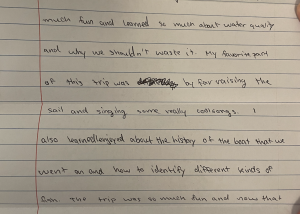 much fun and learned so much about water quality
and why we shouldn't waste it. My favorite part
of this trip was by far raising the
sail and singing some really cool songs. I
also about the history of the boat that we
went on and how to identify different kinds of
The trip was so much fun and now that